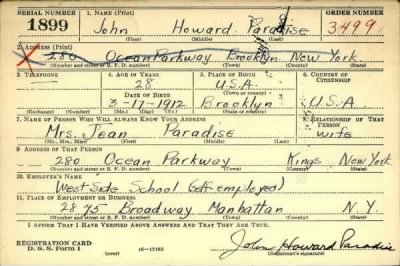 SERIAL NUMBER 1. NAME (Print) ORDER NUMBER
1899 John Howard Paradise 3499
(First) (Middle) (Last)
2. ADDRESS (Print)
280 Ocean Parkway Brooklyn New York
(Number and street or R. F. D. number) (Town) (County) (State)
3. TELEPHONE 4. AGE IN YEARS 5. PLACE OF BIRTH 6. COUNTRY OF CITIZENSHIP
28 U.S.A.
DATE OF BIRTH (Town or county)
3-11-1912 Brooklyn U.S.A
(Exchange) (Number) (Mo.) (Day) (Yr.) (State or country)
7. NAME OF PERSON WHO WILL ALWAYS KNOW YOUR ADDRESS 8. RELATIONSHIP OF THAT PERSON
Mrs. Jean Paradise wife
(Mr., Mrs., Miss) (First) (Middle) (Last)
9. ADDRESS OF THAT PERSON
280 Ocean Parkway Kings New York
(Number and street or R. F. D. number) (Town) (County) (State)
10. EMPLOYER'S NAME
West Side School (self employed)
11. PLACE OF EMPLOYMENT OR BUSINESS
2875 Broadway Manhattan N Y.
(Number and street or R. F. D. number) (Town) (County) (State)
I AFFIRM THAT I HAVE VERIFIED ABOVE ANSWERS AND THAT THEY ARE TRUE.
REGISTRATION CARD
D. S. S. Form 1 16-17105 John Howard Paradise
(Registrant's signature)